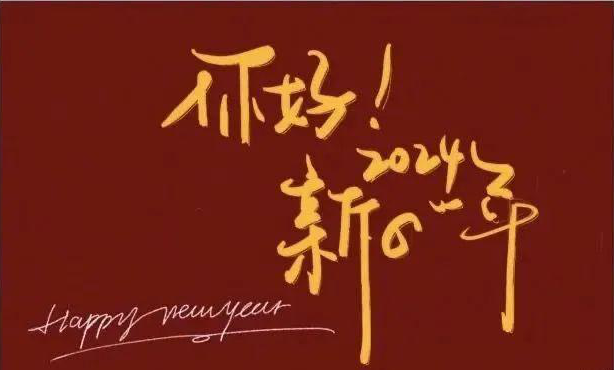 你好!
2024
新的一年
Happy new year